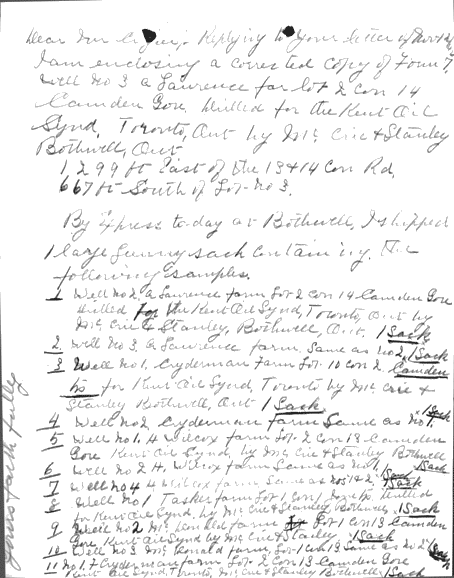 Dear Mr Replying to your letter of
I am enclosing a corrected copy of Form 7,
Well No 3 a Laurence far lot 2 Con 14
Camden Gore. Drilled for the Kent Oil
Synd, Toronto, Ont by Mc Crie & Stanley
Bothwell, Ont
1,299 ft East of the 13 & 14 Con Rd,
667 ft South of Lot No 3.
By Express to-day at Bothwell, I shipped
1 large Gunny sack containing, the
following samples.
1 Well No 2, a Laurence farm Lot 2 Con 14 Camden Gore
drilled for the Kent Oil Synd, Toronto, Ont by
Mc Crie & Stanley, Bothwell, Ont. 1 Sack
2. Well No 3. a Laurence farm, Same as no 2, 1 Sack
3 Well No 1. Cryderman Farm Lot 10 Con 2, Camden
for Kent Oil Synd, Toronto by Mc Crie &
Stanley Bothwell, Ont 1 Sack
4 Well No 2 Cryderman farm Same as no 1, 1 Sack
5 Well No 1. 4 Wilcox farm Lot 2 Con 13 Camden
Gore Kent Oil Synd, by Mc Crie & Stanley Bothwell 1 Sack
6 Well No 2 4, Wilcox farm Same as No 1, 1 Sack
7 Well no 4 4 Wilcox farm, Same as nos 1 & 2, 1 Sack
8 Well No 1 Tasker farm Lot 1 Con 1 drilled
for Kent Oil Synd, by Mc Crie & Stanley Bothwell, 1 Sack
9 Well No 2 Mc farm Lot 1 Con 13 Camden
Gore Kent Oil Synd by Mc Crie & Stanley 1 Sack
10 Well No 3 Mc farm Lot 1 Con 13 Same as no 2, 1 Sack
11 No 1, Cryderman farm Lot 2 Con 13 Camden Gore
Kent Oil Synd, Toronto, Mc Crie & Stanley Bothwell, 1 Sack
Yours faithfully